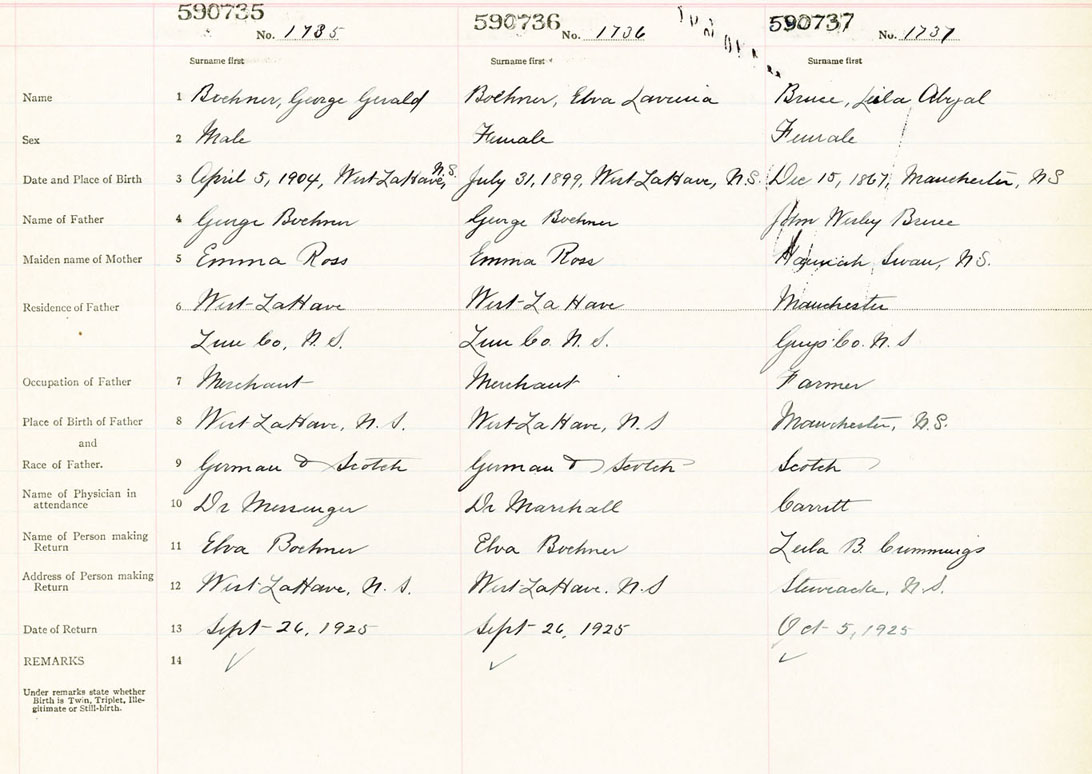 590735 590736 590737
No. 1735 No. 1736 No. 1737
Surname first Surname first Surname first
Name 1 Boehner, George Gerald Boehner, Elva Lavenia Bruce, Leila Abyal
Sex 2 Male Female Female
Date and Place of Birth 3 April 5, 1904, West LaHave, N.S. July 31, 1899, West LaHave, N.S. Dec 15, 1867, Manchester, NS
Name of Father 4 George Boehner George Boehner John Wesley Bruce
Maiden name of Mother 5 Emma Ross Emma Ross Hanniah Swan, N.S.
Residence of Father 6 West LaHave West LaHave Manchester
Lun Co, N.S. Lun Co. N.S. Guys Co. N.S
Occupation of Father 7 Merchant Merchant Farmer
Place of Birth of Father 8 West LaHave, N.S. West LaHave, N.S Manchester, N.S.
and
Race of Father. 9 German & Scotch German & Scotch Scotch
Name of Physician in
attendance 10 Dr Messenger Dr Marshall Carritt
Name of Person making
Return 11 Elva Boehner Elva Boehner Leila B. Cummings
Address of Person making
Return 12 West LaHave, N.S. West LaHave. N.S Stewiacke, N.S.
Date of Return 13 Sept 26, 1925 Sept 26, 1925 Oct 5, 1925
REMARKS 14 ✓ ✓ ✓
Under remarks state whether
Birth is Twin, Triplet, Ille-
gitimate or Still-birth.